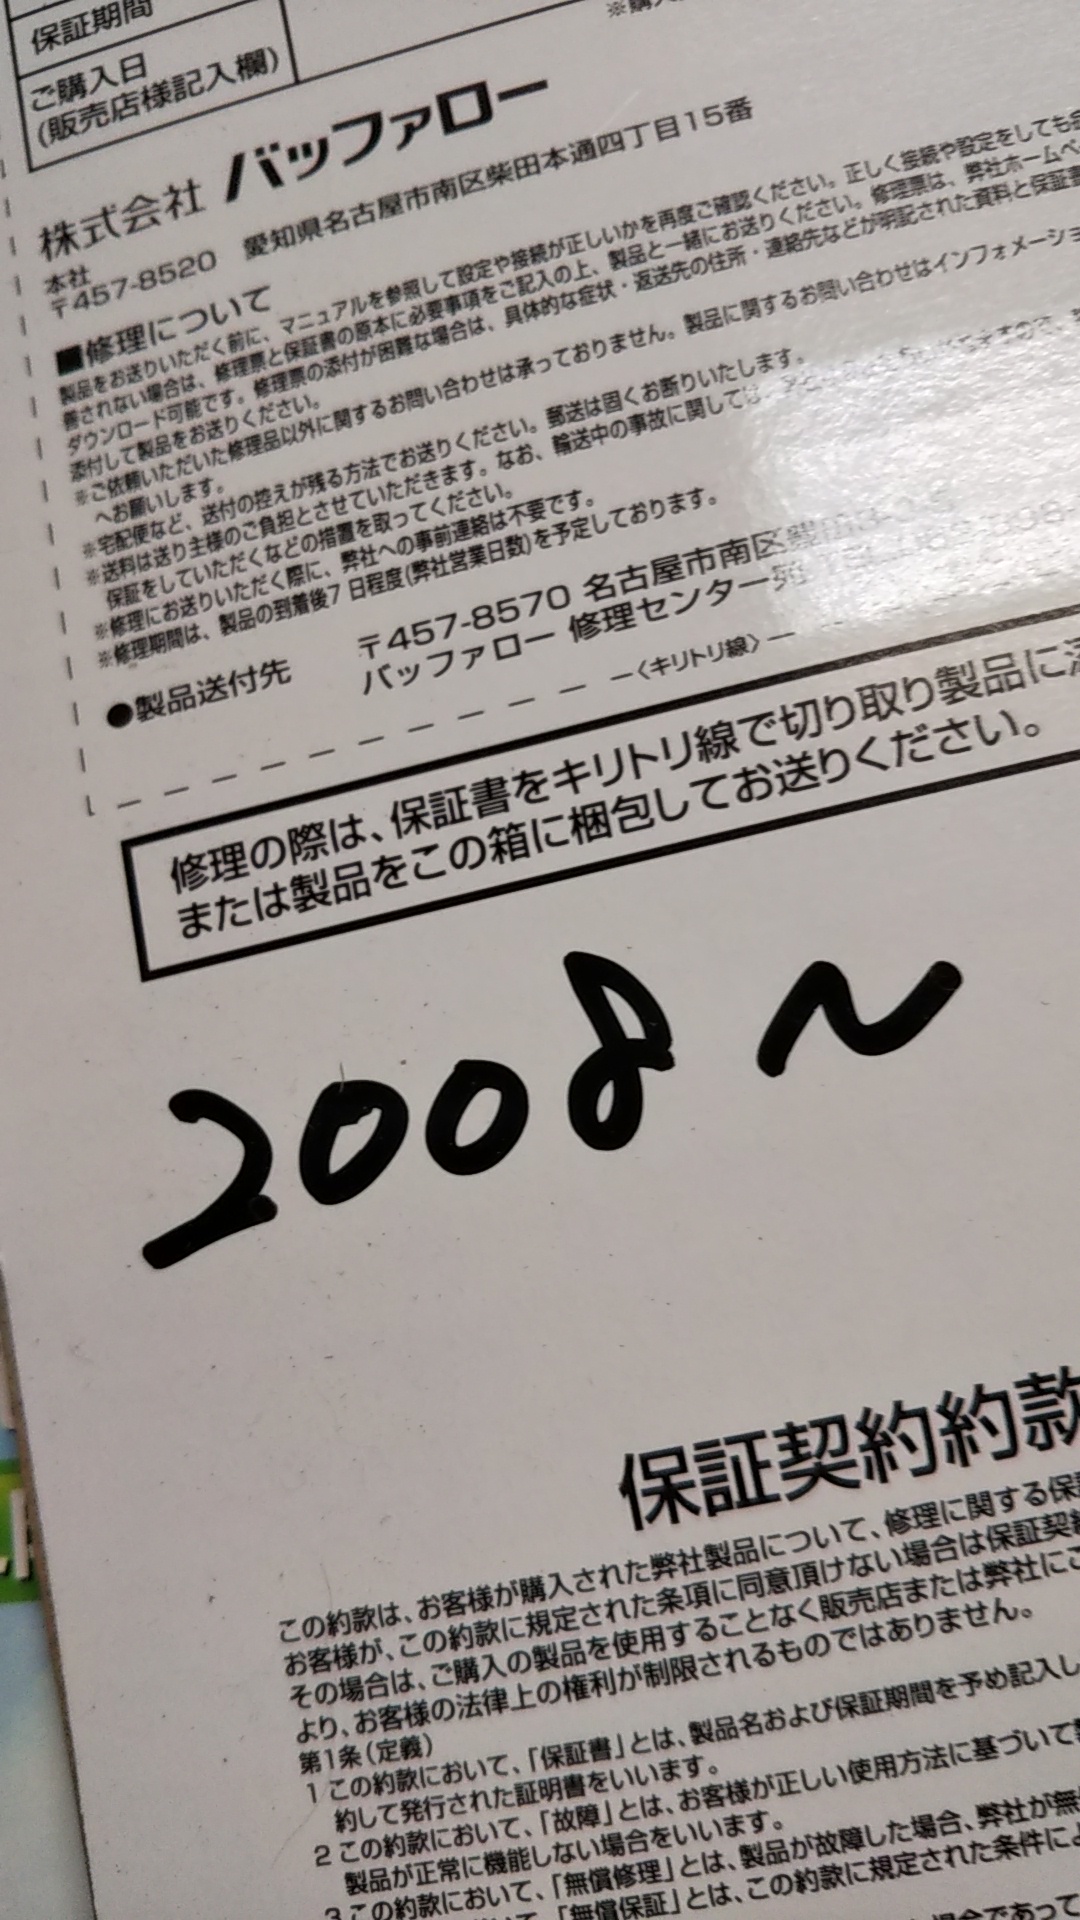 保証期間
※購入
ご購入日
(販売店様記入欄)
株式会社 バッファロー
本社
〒457-8520 愛知県名古屋市南区柴田本通四丁目15番
■修理について
製品をお送りいただく前に、マニュアルを参照して設定や接続が正しいかを再度ご確認ください。正しく接続や設定をしても
善されない場合は、修理票と保証書の原本に必要事項をご記入の上、製品と一緒にお送りください。修理票は、弊社ホームペ
ダウンロード可能です。修理票の添付が困難な場合は、具体的な症状・返送先の住所・連絡先などが明記された資料と保証書
添付して製品をお送りください。
※ご依頼いただいた修理品以外に関するお問い合わせは承っておりません。製品に関するお問い合わせはインフォメーショ
へお願いします。
※宅配便など、送付の控えが残る方法でお送りください。郵送は固くお断りいたします。
※送料は送り主様のご負担とさせていただきます。なお、輸送中の事故に関しては
保証をしていただくなどの措置を取ってください。
※修理にお送りいただく際に、弊社への事前連絡は不要です。
※修理期間は、製品の到着後7日程度(弊社営業日数)を予定しております。
●製品送付先 〒457-8570 名古屋市南区
バッファロー 修理センター宛
〈キリトリ線〉
修理の際は、保証書をキリトリ線で切り取り製品に
または製品をこの箱に梱包してお送りください。
2008～
保証契約約款
この約款は、お客様が購入された弊社製品について、修理に関する保
お客様が、この約款に規定された条項に同意頂けない場合は保証契
その場合は、ご購入の製品を使用することなく販売店または弊社にご
より、お客様の法律上の権利が制限されるものではありません。
第1条(定義)
1 この約款において、「保証書」とは、製品名および保証期間を予め記入し
約して発行された証明書をいいます。
2 この約款において、「故障」とは、お客様が正しい使用方法に基づいて
製品が正常に機能しない場合をいいます。
3 この約款において、「無償修理」とは、製品が故障した場合、弊社が無
「無償保証」とは、この約款に規定された条件によ